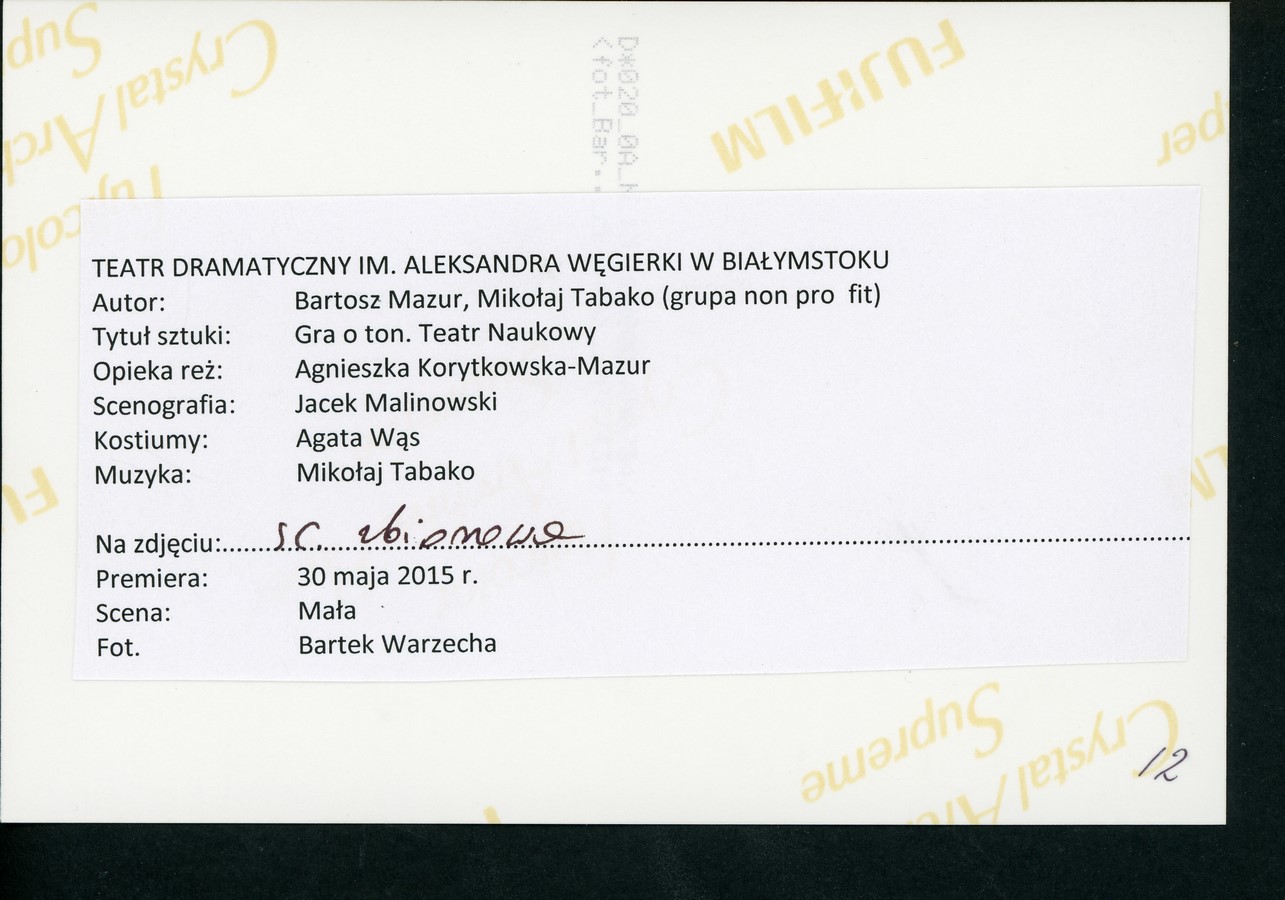 Crystal Arch
Supreme
FUJIFILM
D*020_0A_
<fot_Bar..
per
Fujicolo
TEATR DRAMATYCZNY IM. ALEKSANDRA WĘGIERKI W BIAŁYMSTOKU
Autor: Bartosz Mazur, Mikołaj Tabako (grupa non pro fit)
Tytuł sztuki: Gra o ton. Teatr Naukowy
Opieka reż: Agnieszka Korytkowska-Mazur
Scenografia: Jacek Malinowski
Kostiumy: Agata Wąs
Muzyka: Mikołaj Tabako
Na zdjęciu:......sc. zbiorowa......
Premiera: 30 maja 2015 r.
Scena: Mała
Fot. Bartek Warzecha
Crystal Arc
Supreme
12